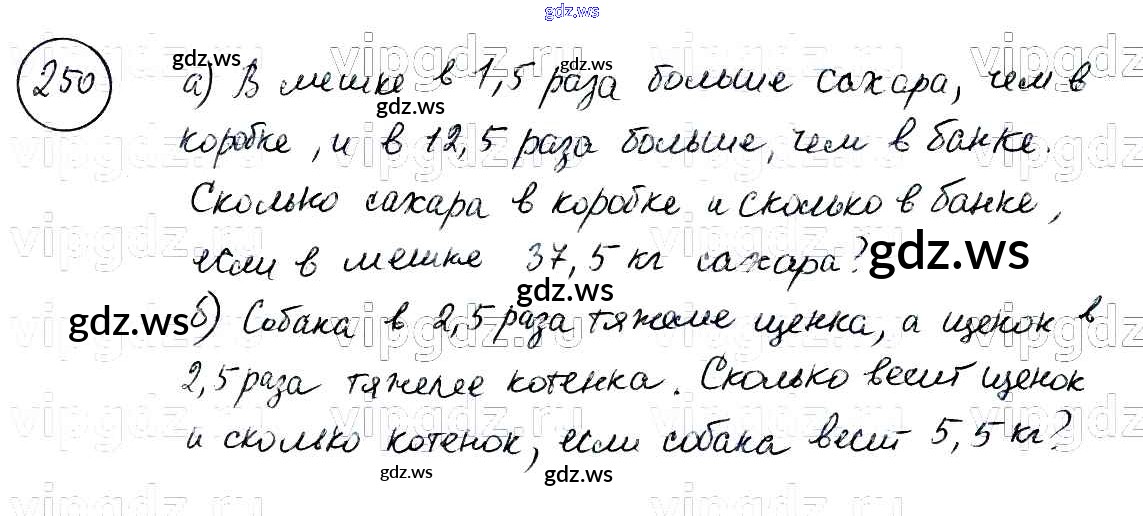 gdz.ws
vipgdz.ru vipgdz.ru vipgdz.ru
gdz.ws gdz.ws
250 а) В мешке в 1,5 раза больше сахара, чем в
gdz.ws gdz.ws
коробке, и в 12,5 раза больше, чем в банке.
Сколько сахара в коробке и сколько в банке,
если в мешке 37,5 кг сахара?
gdz.ws
gdz.ws
gdz.ws
б) Собака в 2,5 раза тяжелее щенка, а щенок в
2,5 раза тяжелее котенка. Сколько весит щенок
и сколько котенок, если собака весит 5,5 кг?
gdz.ws gdz.ws